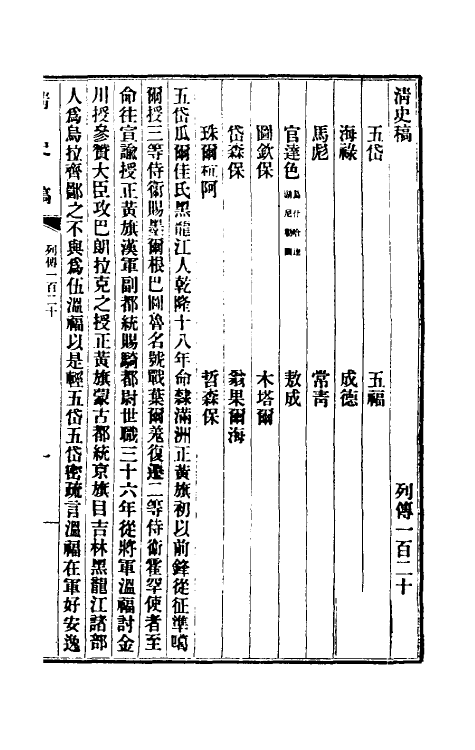 清史稿　列傳一百二十
五岱　五福
海祿　成德
馬彪　常青
官達色　敖成
圖欽保　木塔爾
岱森保　翁果爾海
珠爾杭阿　哲森保
五岱瓜爾佳氏黑龍江人乾隆十八年命隸滿洲正黃旗初以前鋒從征準噶
爾授三等侍衛賜墨爾根巴圖魯名號戰葉爾羌復遷二等侍衛霍罕使者至
命往宣諭授正黃旗漢軍副都統賜騎都尉世職三十六年從將軍溫福討金
川授參贊大臣攻巴朗拉克之授正黃旗蒙古都統京旗目吉林黑龍江諸部
人為烏拉齊鄙之不與為伍溫福以是輕五岱五岱密疏言溫福在軍好安逸
清史稿　列傳一百二十　一